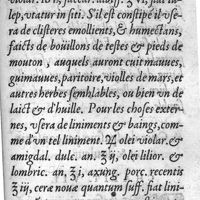 violar. ℥ ij, saccar. albiss. ℥ vj, fiat iu-
lep, vtatur in siti. S'il est constipé il vse-
ra de clisteres emollients, & humectans,
faicts de boüillons de testes & pieds de
mouton, auquels auront cuit mauues,
guimauues, paritoire, violles de mars, et
autres herbes semblables, ou bien vn de
laict & d'huille. Pour les choses exter-
nes, vsera de liniments & baings, com-
me d'vn tel liniment. ℞ olei violar. &
amigdal. dule. an. ℥ ij, olei lilior. &
lombric. an. ℥ i, axung. porc. recentis
℥ iij, ceræ nouæ quantum suff. fiat lini-